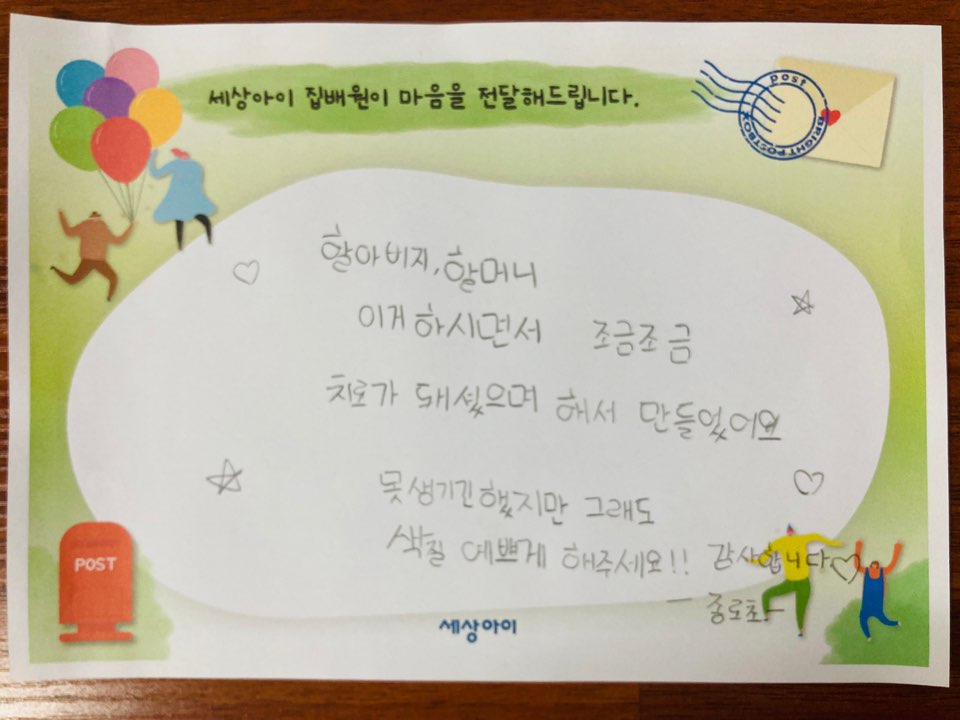 세상아이 집배원이 마음을 전달해드립니다.
post
BRIGHT POSTBOX
할아버지, 할머니
이거 하시면서 조금조금
치료가 돼셨으며 해서 만들었어요
못생기긴했지만 그래도
색칠 예쁘게 해주세요!! 감사합니다♡
- 종로초 -
POST
세상아이